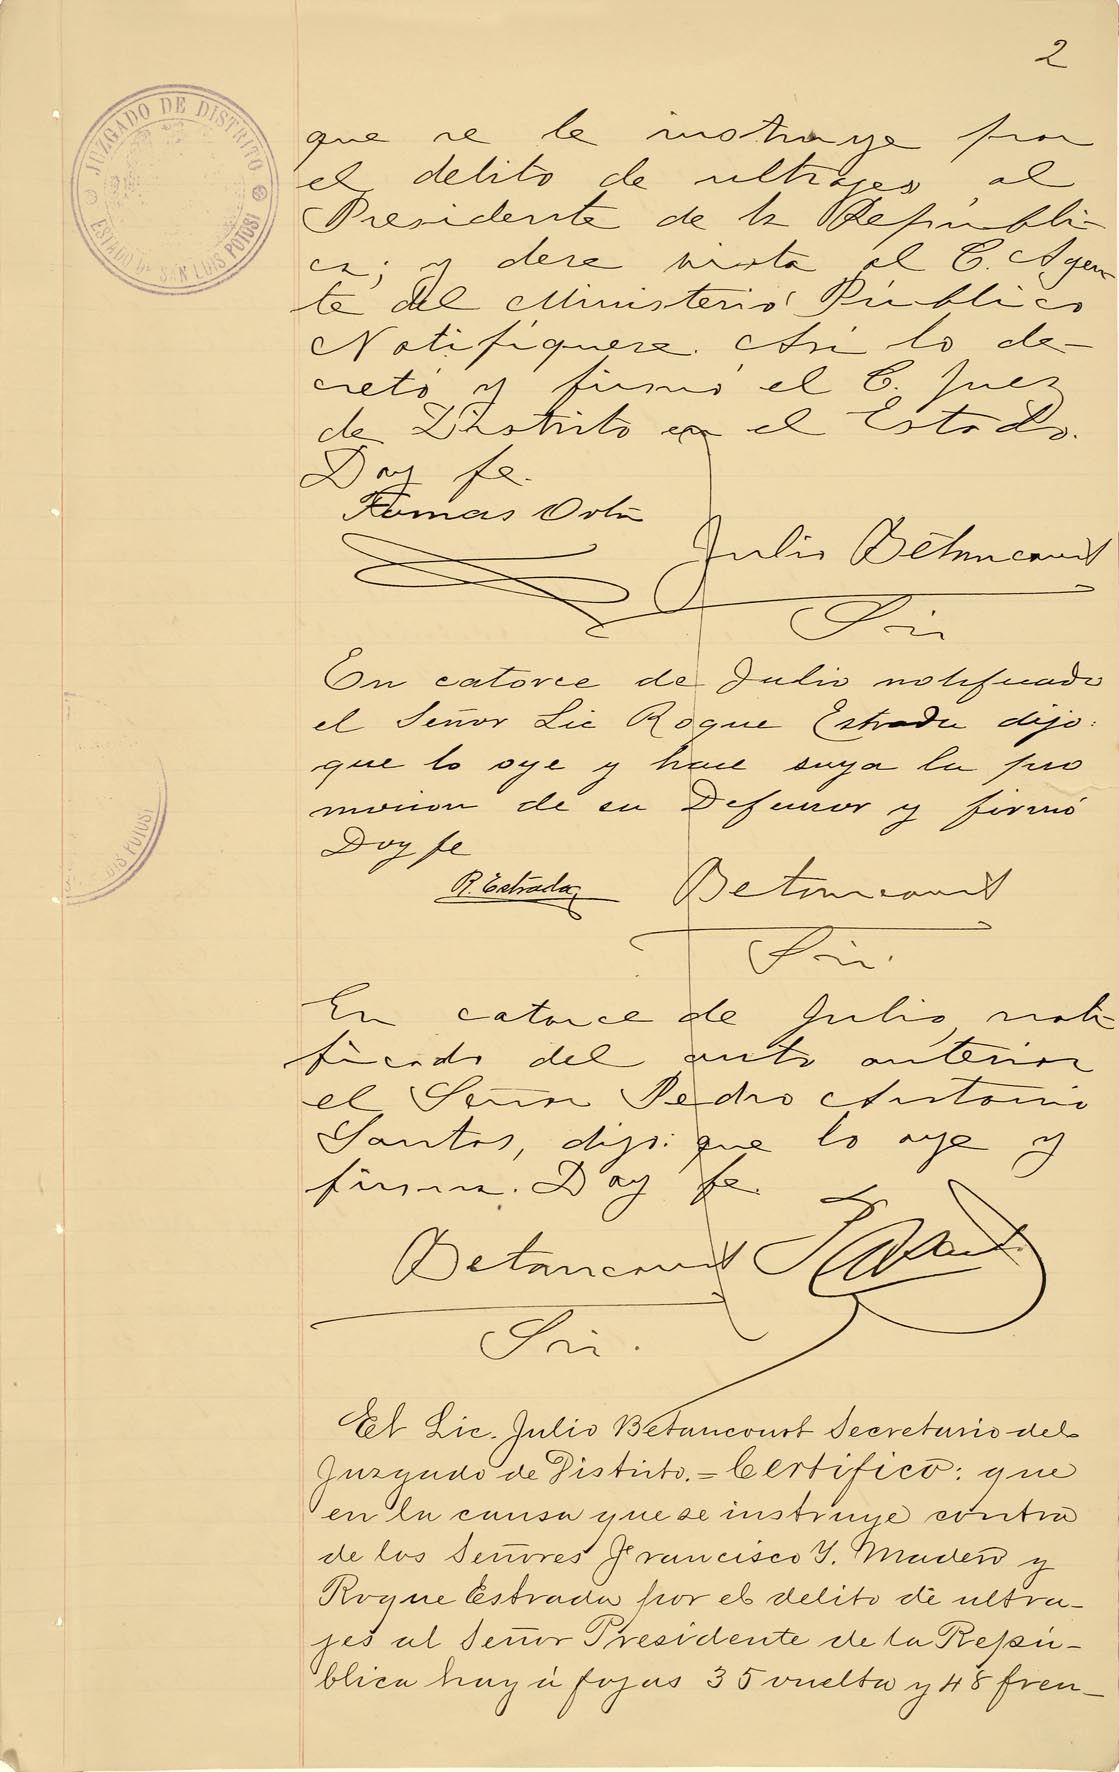 2
JUZGADO DE DISTRITO
ESTADO DE SAN LUIS POTOSI
que se le instruye por
el delito de ultrajes al
Presidente de la Repúbli-
ca; y dese vista al C. Agen-
te del Ministerio Público
Notifíquese. Así lo de-
cretó y firmó el C. Juez
de Distrito en el Estado.
Doy fe.
Tomas Ortiz
Julio Betancourt
Srio
En catorce de Julio notificado
el Señor Lic Roque Estrada dijo:
que lo oye y hace suya la pro
mocion de su Defensor y firmó
Doy fe
R. Estrada
Betancourt
Srio.
LUIS POTOSI
En catorce de Julio, noti-
ficado del auto anterior
el Señor Pedro Antonio
Santos, dijo: que lo oye y
firma. Doy fe.
Betancourt
Srio.
El Lic. Julio Betancourt Secretario del
Juzgado de Distrito.=Certifico: que
en la causa que se instruye contra
de los Señores Francisco Y. Madero y
Roque Estrada por el delito de ultra-
jes al Señor Presidente de la Repú-
blica hay á fojas 35 vuelta y 48 fren-